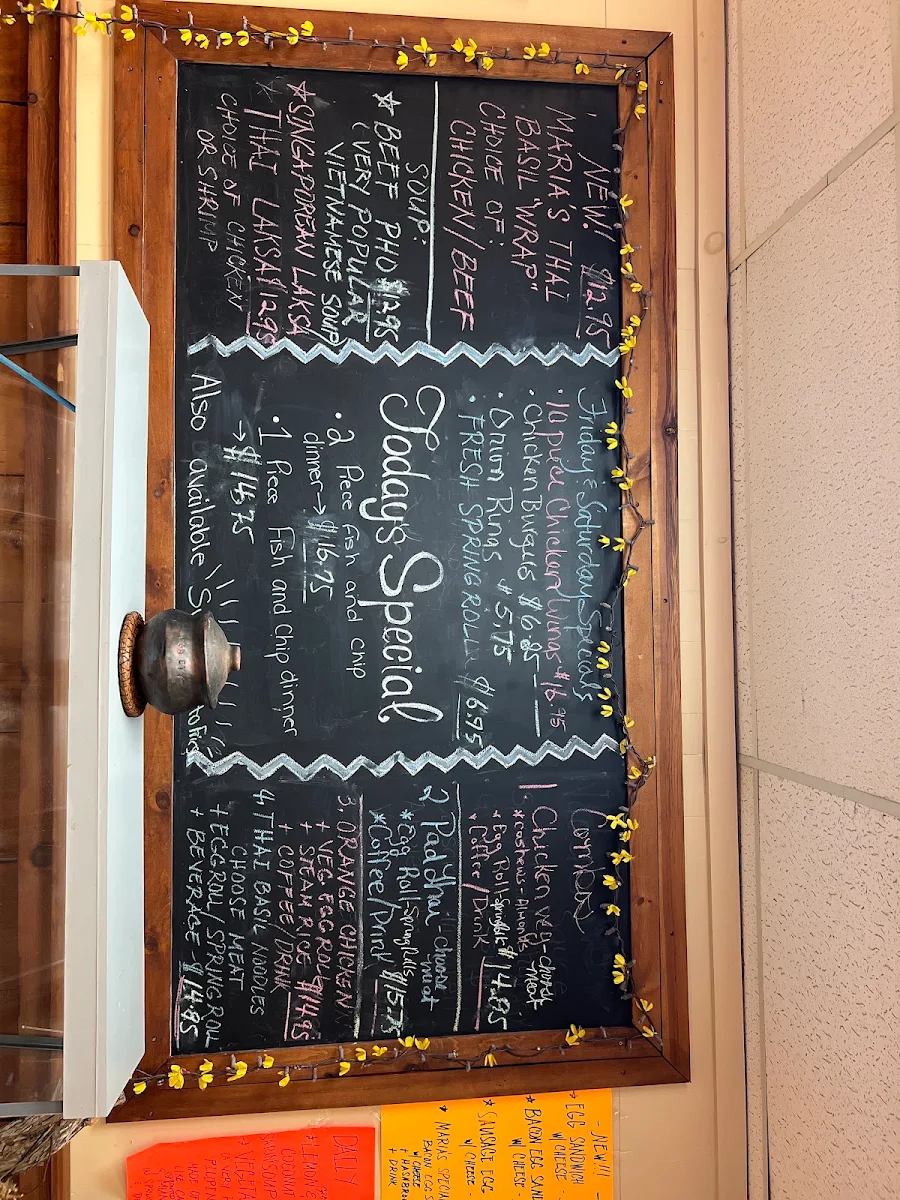 NEW!
MARIA'S THAI $12.95
BASIL "WRAP"
CHOICE OF:
CHICKEN/BEEF
SOUP:
☆ BEEF PHO $12.95
(VERY POPULAR
VIETNAMESE SOUP
☆ SINGAPOREAN LAKSA
☆ THAI LAKSA $12.95
CHOICE OF CHICKEN
OR SHRIMP
Friday & Saturday Specials
• 10 piece Chicken Wings $16.95
• Chicken Burgers $6.95
• Onion Rings $5.75
• FRESH SPRING ROLLS $6.95
Today's Special
• 2 Piece fish and chip
dinner → $16.75
• 1 Piece Fish and chip dinner
→ $14.75
Also available
Combos
1. Chicken veg - choose meat
* Cashews - Almonds
* Egg Roll - Spring Rolls $14.95
* Coffee/Drink
2 Pad Thai - choose meat
* Egg Roll - Spring Rolls $15.75
* Coffee/Drink
3. ORANGE CHICKEN
+ VEG EGG ROLL
+ STEAM RICE $14.95
+ COFFEE/DRINK
4. THAI BASIL NOODLES
CHOOSE MEAT
+ EGG ROLL/SPRING ROLL
+ BEVERAGE $14.95
- NEW!!! -
☆ EGG SANDWICH
W/ CHEESE -
☆ BACON EGG SAND
W/ CHEESE -
☆ SAUSAGE EGG
W/ CHEESE -
☆ MARIA'S SPECIAL
BACON EGG S
W/ CHEESE
+ HASHBR
+ DRINK
DAILY